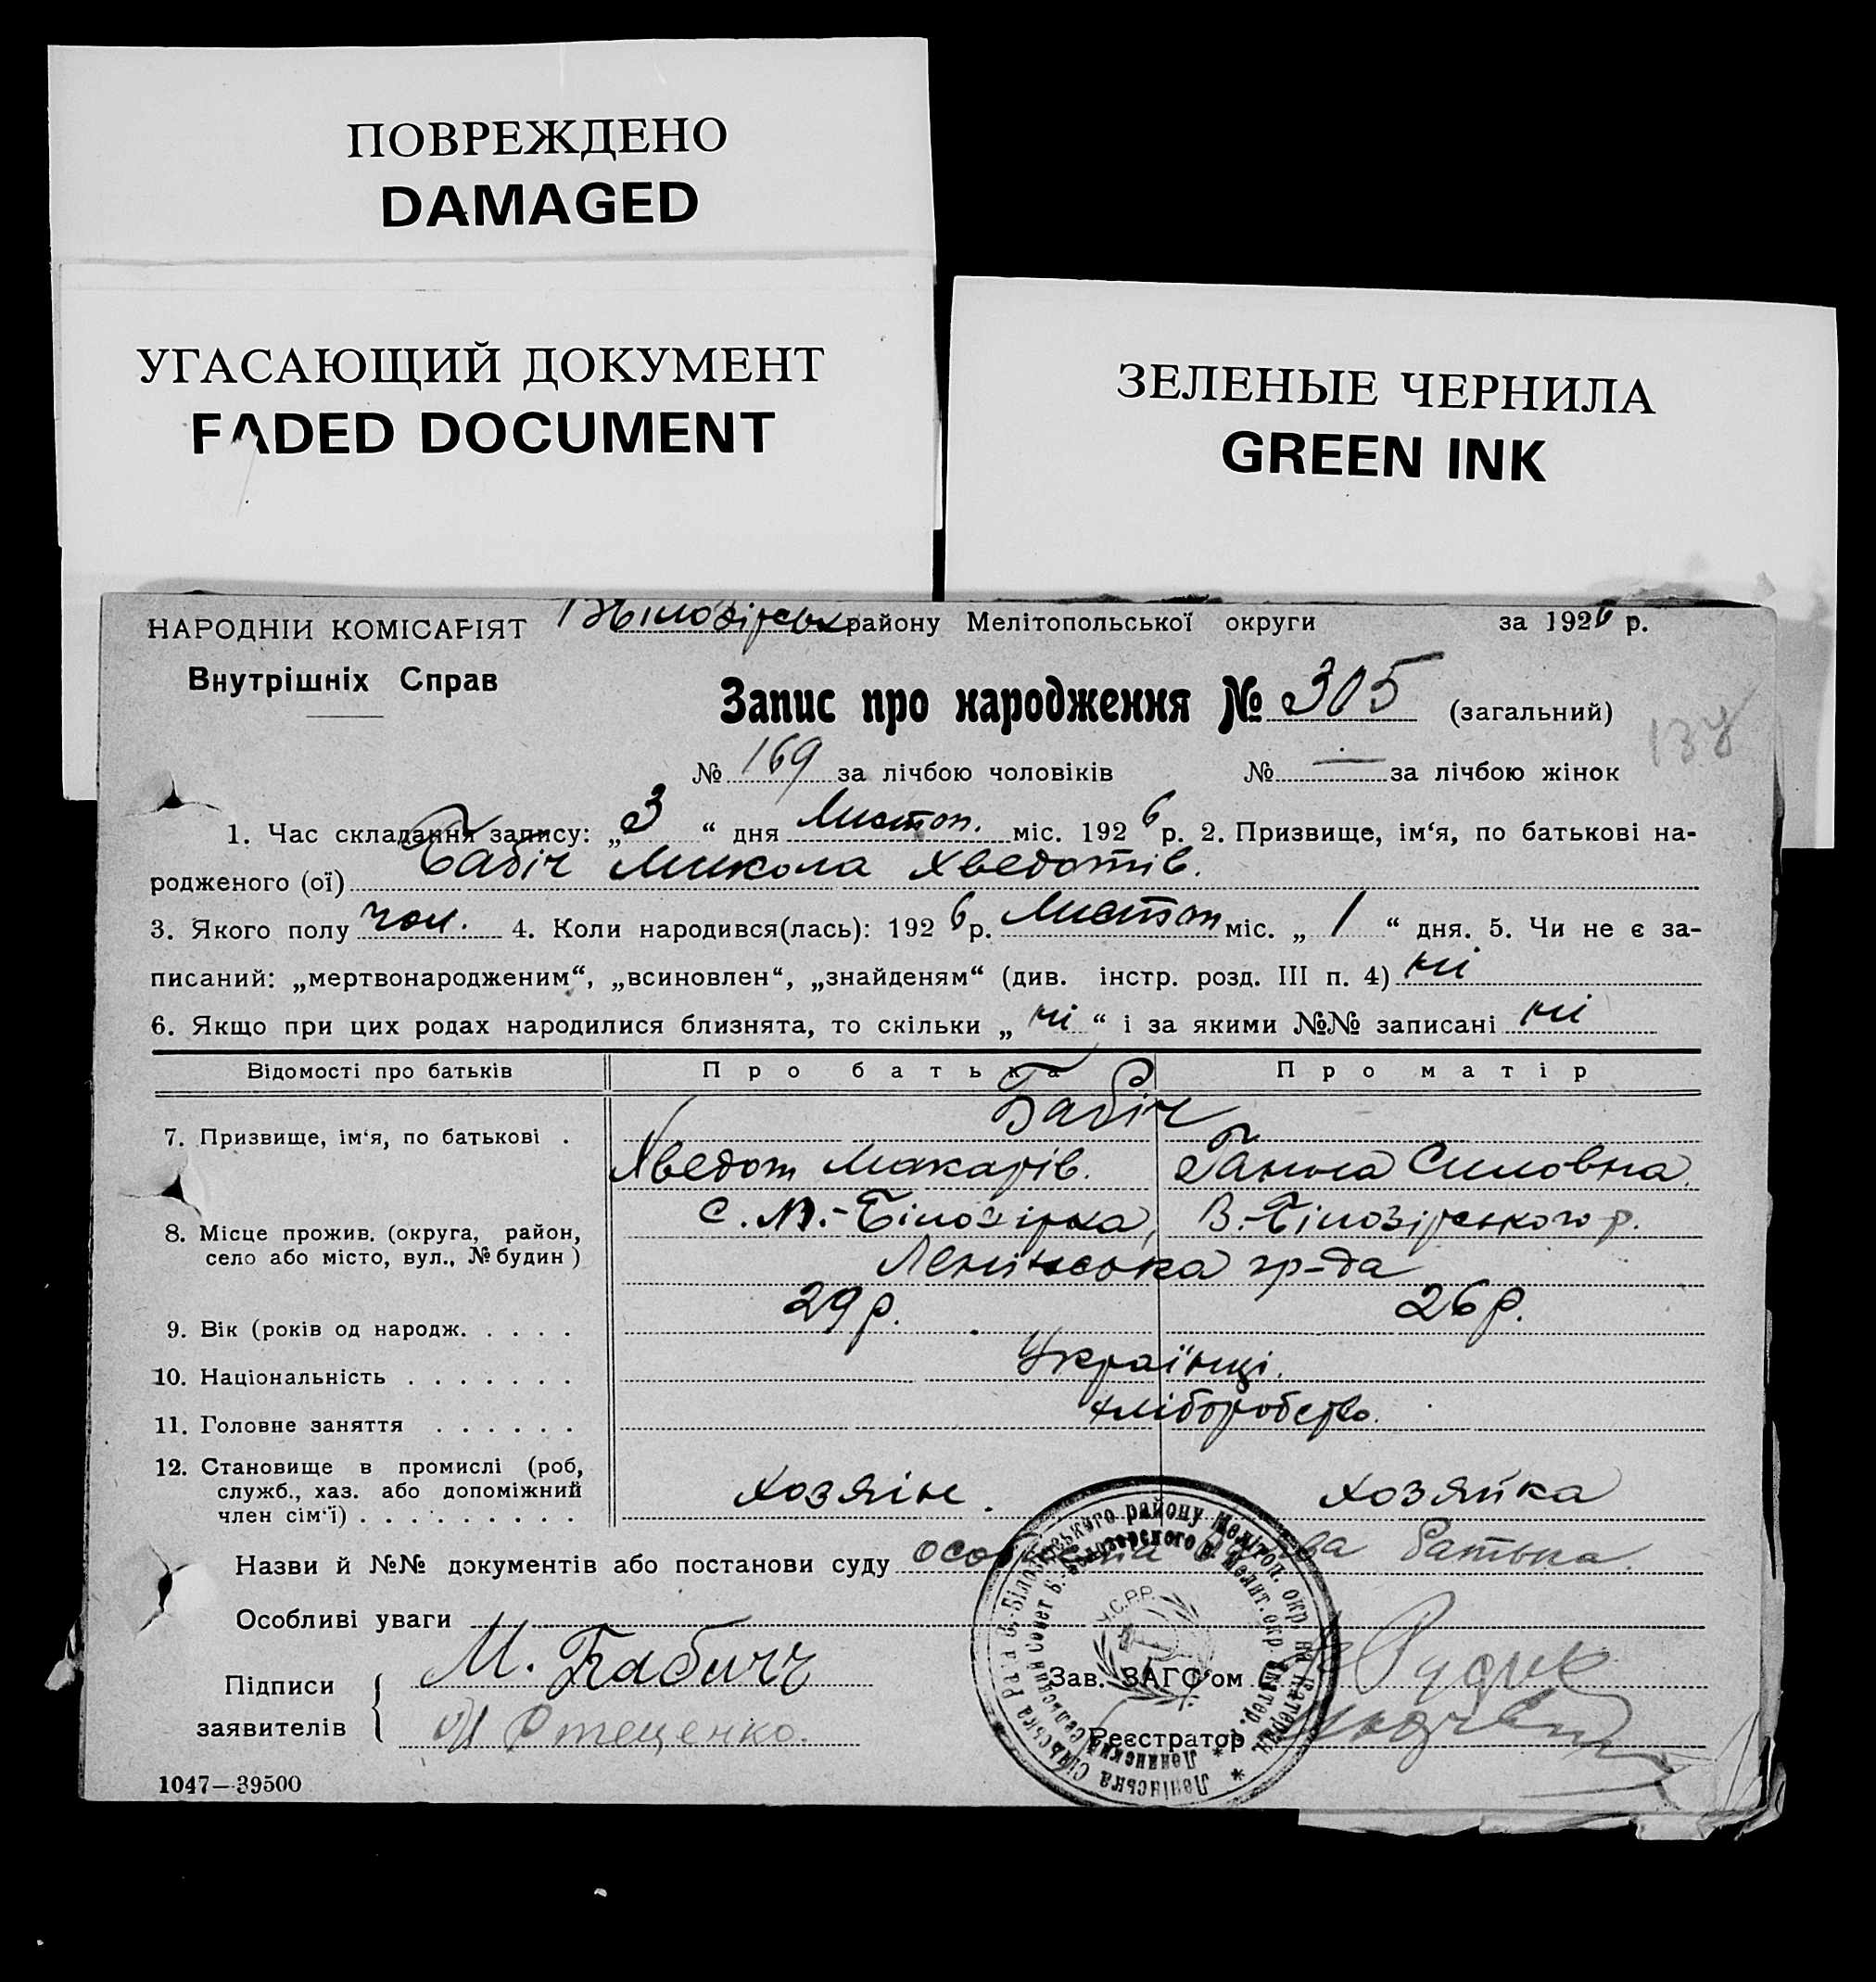 ПОВРЕЖДЕНО
DAMAGED
УГАСАЮЩИЙ ДОКУМЕНТ
FADED DOCUMENT
ЗЕЛЕНЫЕ ЧЕРНИЛА
GREEN INK
НАРОДНІЙ КОМІСАРІЯТ
Внутрішніх Справ
В-Білозірськ району Мелітопольської округи за 1926 р.
Запис про народження № 305 (загальний)
137
№ 169 за лічбою чоловіків № — за лічбою жінок
1. Час складання запису: „3“ дня Листоп. міс. 1926 р. 2. Призвище, ім‘я, по батькові на-
родженого (ої) Бабіч Микола Хведотів.
3. Якого полу чол. 4. Коли народився(лась): 1926 р. Листоп міс. „1“ дня. 5. Чи не є за-
писаний: „мертвонародженим“, „всиновлен“, „знайденям“ (див. інстр. розд. III п. 4) ні
6. Якщо при цих родах народилися близнята, то скільки „ні“ і за якими №№ записані ні
Відомості про батьків Про батька Про матір
Бабіч
7. Призвище, ім‘я, по батькові .
Хведот Макарів. Ганна Силовна.
С. М.-Білозірка, В.-Білозірського р.
8. Місце прожив. (округа, район,
село або місто, вул., № будин )
Ленінська гр-да
29 р. 26 р.
9. Вік (років од народж. . . . .
Українці.
10. Національність . . . . . . .
хліборобство.
11. Головне заняття . . . . . .
12. Становище в промислі (роб,
служб., хаз. або допоміжний
член сім‘ї) . . . . . . . . .
хозяін. хозяйка
Назви й №№ документів або постанови суду особиста заява батька.
Особливі уваги
Підписи
заявителів
М. Бабичь
Стеценко.
Зав. ЗАГС‘ом
Реєстратор
У.С.Р.Р.
Ленінська Сільська Рада В.-Білозерського району Мелітоп. окр. на Катерин.
Ленинский сельский совет Б. Белозерского р. Мелит. окр. Екатер.
1047—39500